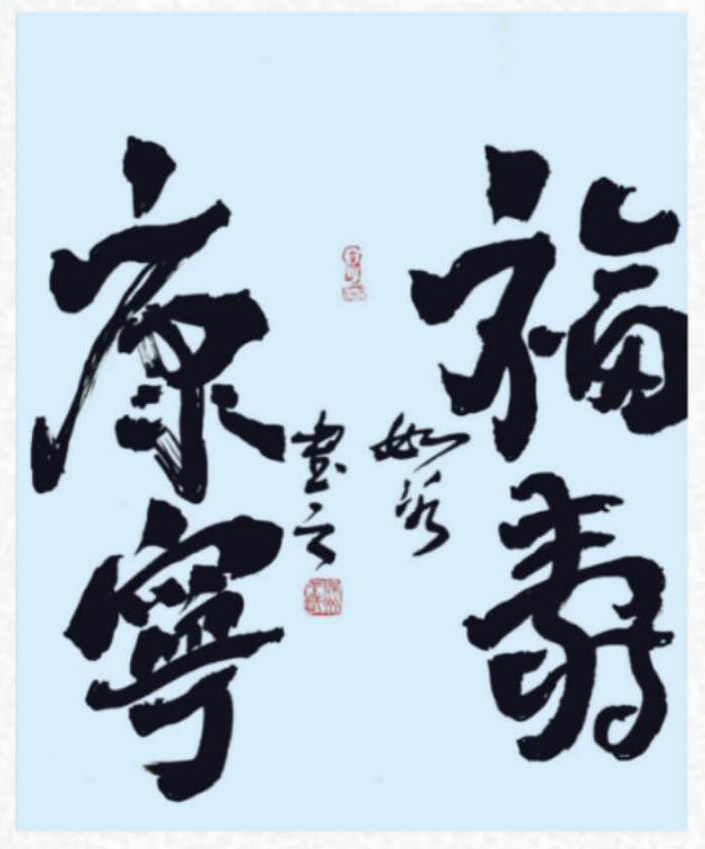 福壽
康寧
如谷
書之